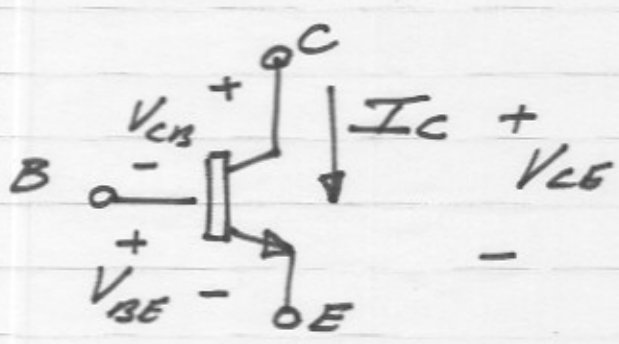 C
+
V_CB
I_C
+
B
-
V_CE
+
V_BE
-
-
E